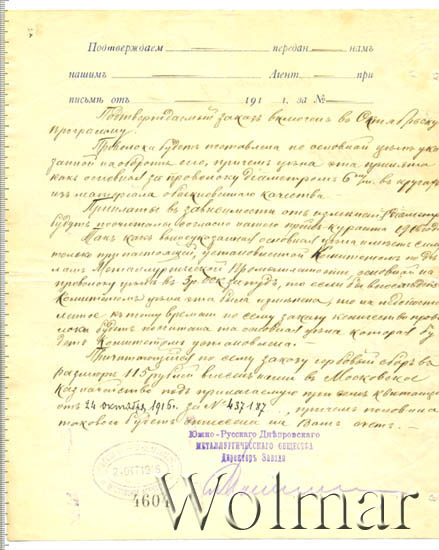 Подтверждаем передан намъ
нашимъ Агент при
письмѣ отъ 191 г. за №
Подтверждаемый заказ включен въ Октябрьскую
программу.
Проволока будетъ поставлена по основной цѣнѣ ука
занной на оборотѣ сего, причемъ цѣна эта принята
какъ основная за проволоку діаметромъ 6 m/m. въ кругахъ
изъ матеріала обыкновеннаго качества.
Приплаты въ зависимости отъ
будутъ согласно нашего прейсъ куранта 1916 года
Такъ какъ вышеуказанная основная цѣна имѣетъ силу
только установленной Комитетомъ по дѣ
ламъ Металлургической Промышленности, основной на
проволоку цѣны въ за пудъ, то если бы
Комитетомъ цѣна эта была измѣнена, то на
ленное къ тому времени по сему заказу количество прово
локи будетъ та основная цѣна которая бу
детъ Комитетомъ установлена.-
Причитающійся по сему заказу гербовый сборъ въ
размѣрѣ 115 рублей внесенъ нами въ Московское
Казначейство подъ
отъ 24 октября 1916. за № 437187, причемъ половина
такового будетъ отнесена на Вашъ счетъ.-
Южно-Русскаго Днѣпровскаго
МЕТАЛЛУРГИЧЕСКАГО ОБЩЕСТВА
Директоръ Завода
4604
Wolmar